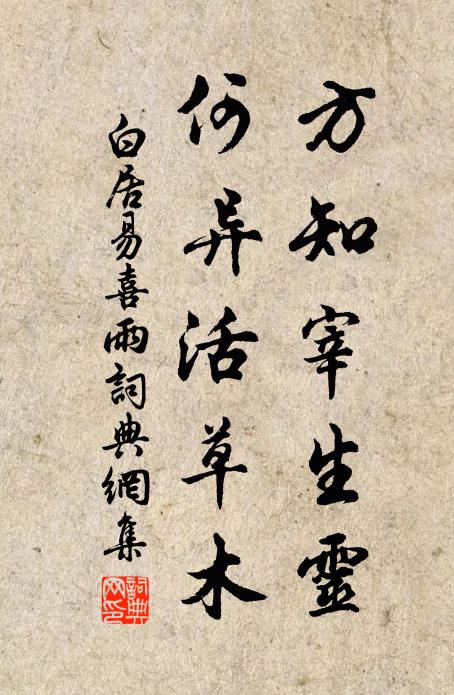 方知宰生靈
何异活草木
白居易喜雨詞典網集
詞典网印